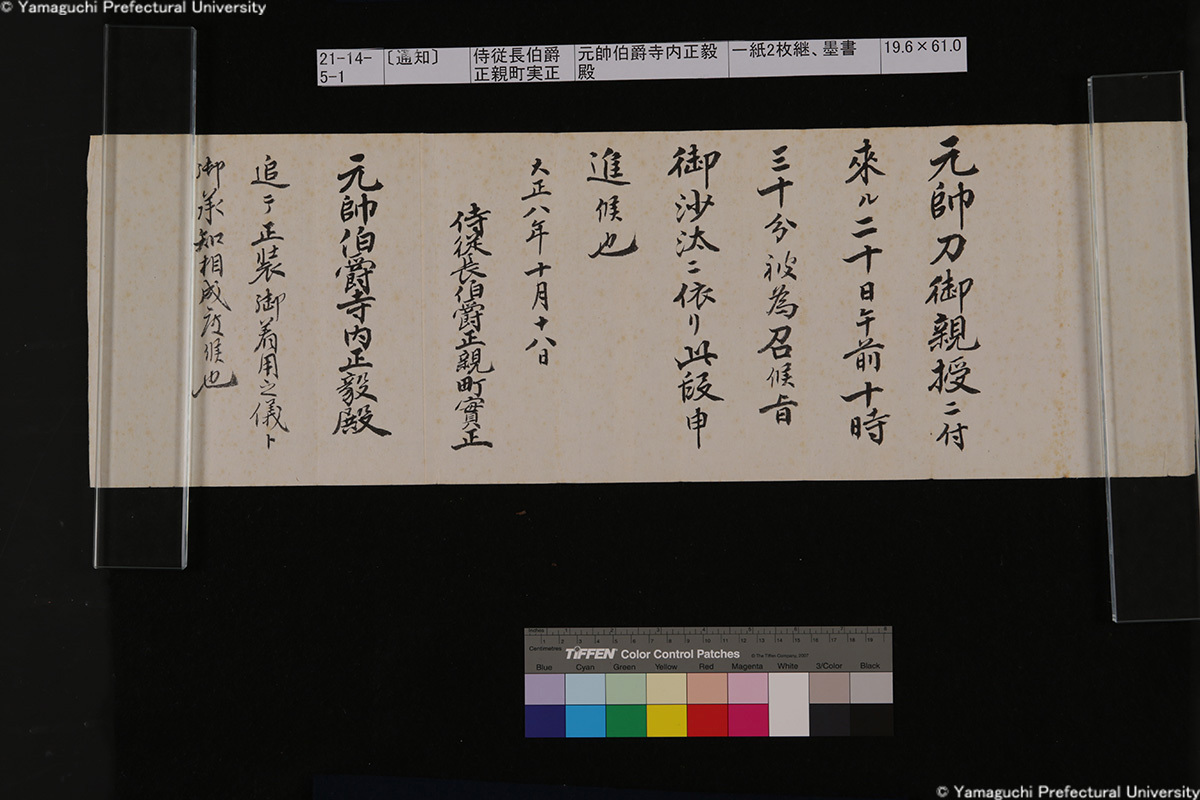 © Yamaguchi Prefectural University
21-14-5-1
〔通知〕
侍従長伯爵正親町実正
元帥伯爵寺内正毅殿
一紙2枚継、墨書
19.6×61.0
元帥刀御親授ニ付
來ル二十日午前十時
三十分被為召候旨
御沙汰ニ依リ此段申
進候也
大正八年十月十八日
侍従長伯爵正親町實正
元帥伯爵寺内正毅殿
追テ正装御着用之儀ト
御承知相成度候也
Inches
Centimetres
TIFFEN Color Control Patches
© The Tiffen Company, 2007
Blue Cyan Green Yellow Red Magenta White 3/Color Black
© Yamaguchi Prefectural University